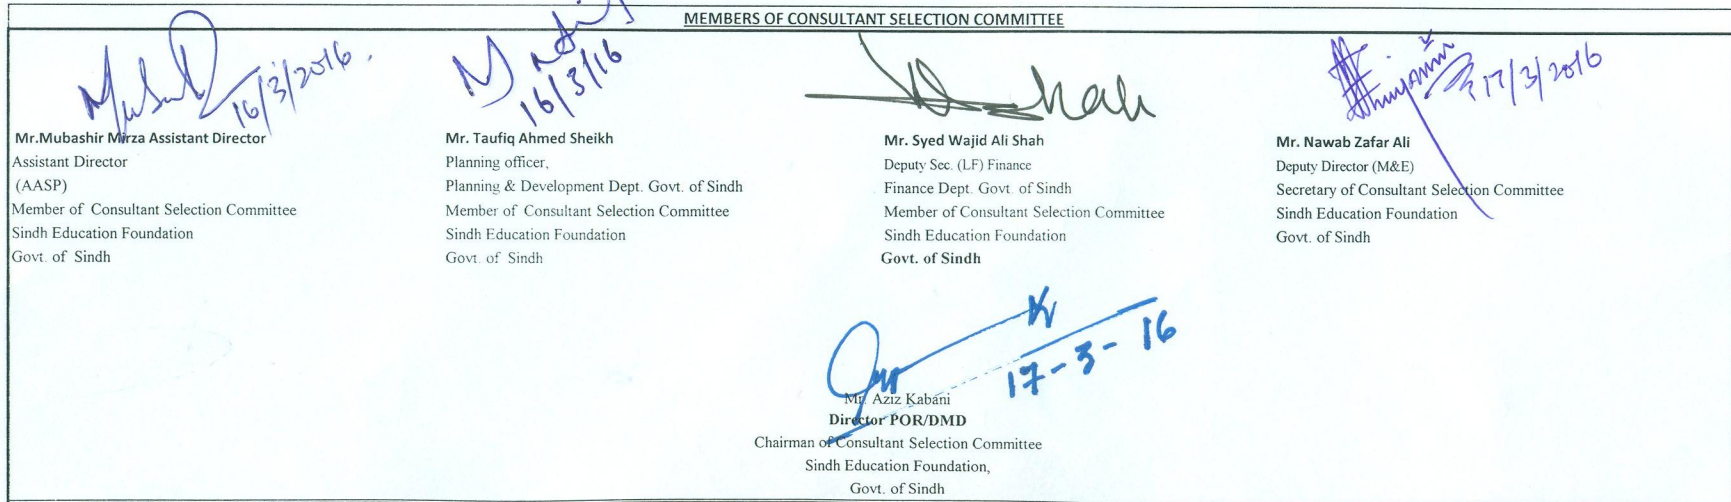 MEMBERS OF CONSULTANT SELECTION COMMITTEE
16/3/2016.
Mr.Mubashir Mirza Assistant Director
Assistant Director
(AASP)
Member of Consultant Selection Committee
Sindh Education Foundation
Govt. of Sindh
16/3/16
Mr. Taufiq Ahmed Sheikh
Planning officer,
Planning & Development Dept. Govt. of Sindh
Member of Consultant Selection Committee
Sindh Education Foundation
Govt. of Sindh
Shah
Mr. Syed Wajid Ali Shah
Deputy Sec. (LF) Finance
Finance Dept. Govt. of Sindh
Member of Consultant Selection Committee
Sindh Education Foundation
Govt. of Sindh
17/3/2016
Mr. Nawab Zafar Ali
Deputy Director (M&E)
Secretary of Consultant Selection Committee
Sindh Education Foundation
Govt. of Sindh
17-3-16
Mr. Aziz Kabani
Director POR/DMD
Chairman of Consultant Selection Committee
Sindh Education Foundation,
Govt. of Sindh